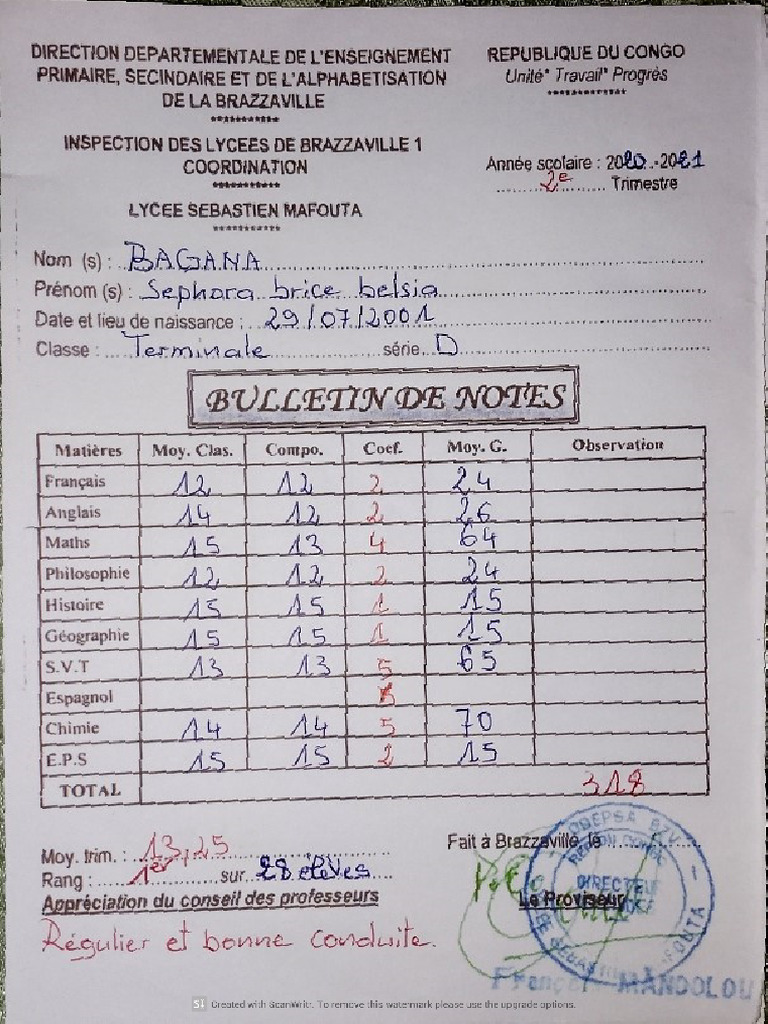 DIRECTION DEPARTEMENTALE DE L'ENSEIGNEMENT
PRIMAIRE, SECINDAIRE ET DE L'ALPHABETISATION
DE LA BRAZZAVILLE
***********
INSPECTION DES LYCEES DE BRAZZAVILLE 1
COORDINATION
***********
LYCEE SEBASTIEN MAFOUTA
***********
REPUBLIQUE DU CONGO
Unité* Travail* Progrès
*************
Année scolaire : 2020.-2021
2e Trimestre
Nom (s) : BAGANA
Prénom (s) : Sephora brice belsia
Date et lieu de naissance : 29/07/2001
Classe : Terminale série D
BULLETIN DE NOTES
Matières Moy. Clas. Compo. Coef. Moy. G. Observation
Français 12 12 2 24
Anglais 14 12 2 26
Maths 15 13 4 64
Philosophie 12 12 2 24
Histoire 15 15 1 15
Géographie 15 15 1 15
S.V.T 13 13 5 65
Espagnol
Chimie 14 14 5 70
E.P.S 15 15 2 15
TOTAL 318
Moy. trim. : 13,25
Rang : 1er sur 28 élèves
Appréciation du conseil des professeurs
Régulier et bonne conduite.
Fait à Brazzaville, le
Le Proviseur
DIRECTEUR
MANDOLOU
Created with ScanWritr. To remove this watermark please use the upgrade options.